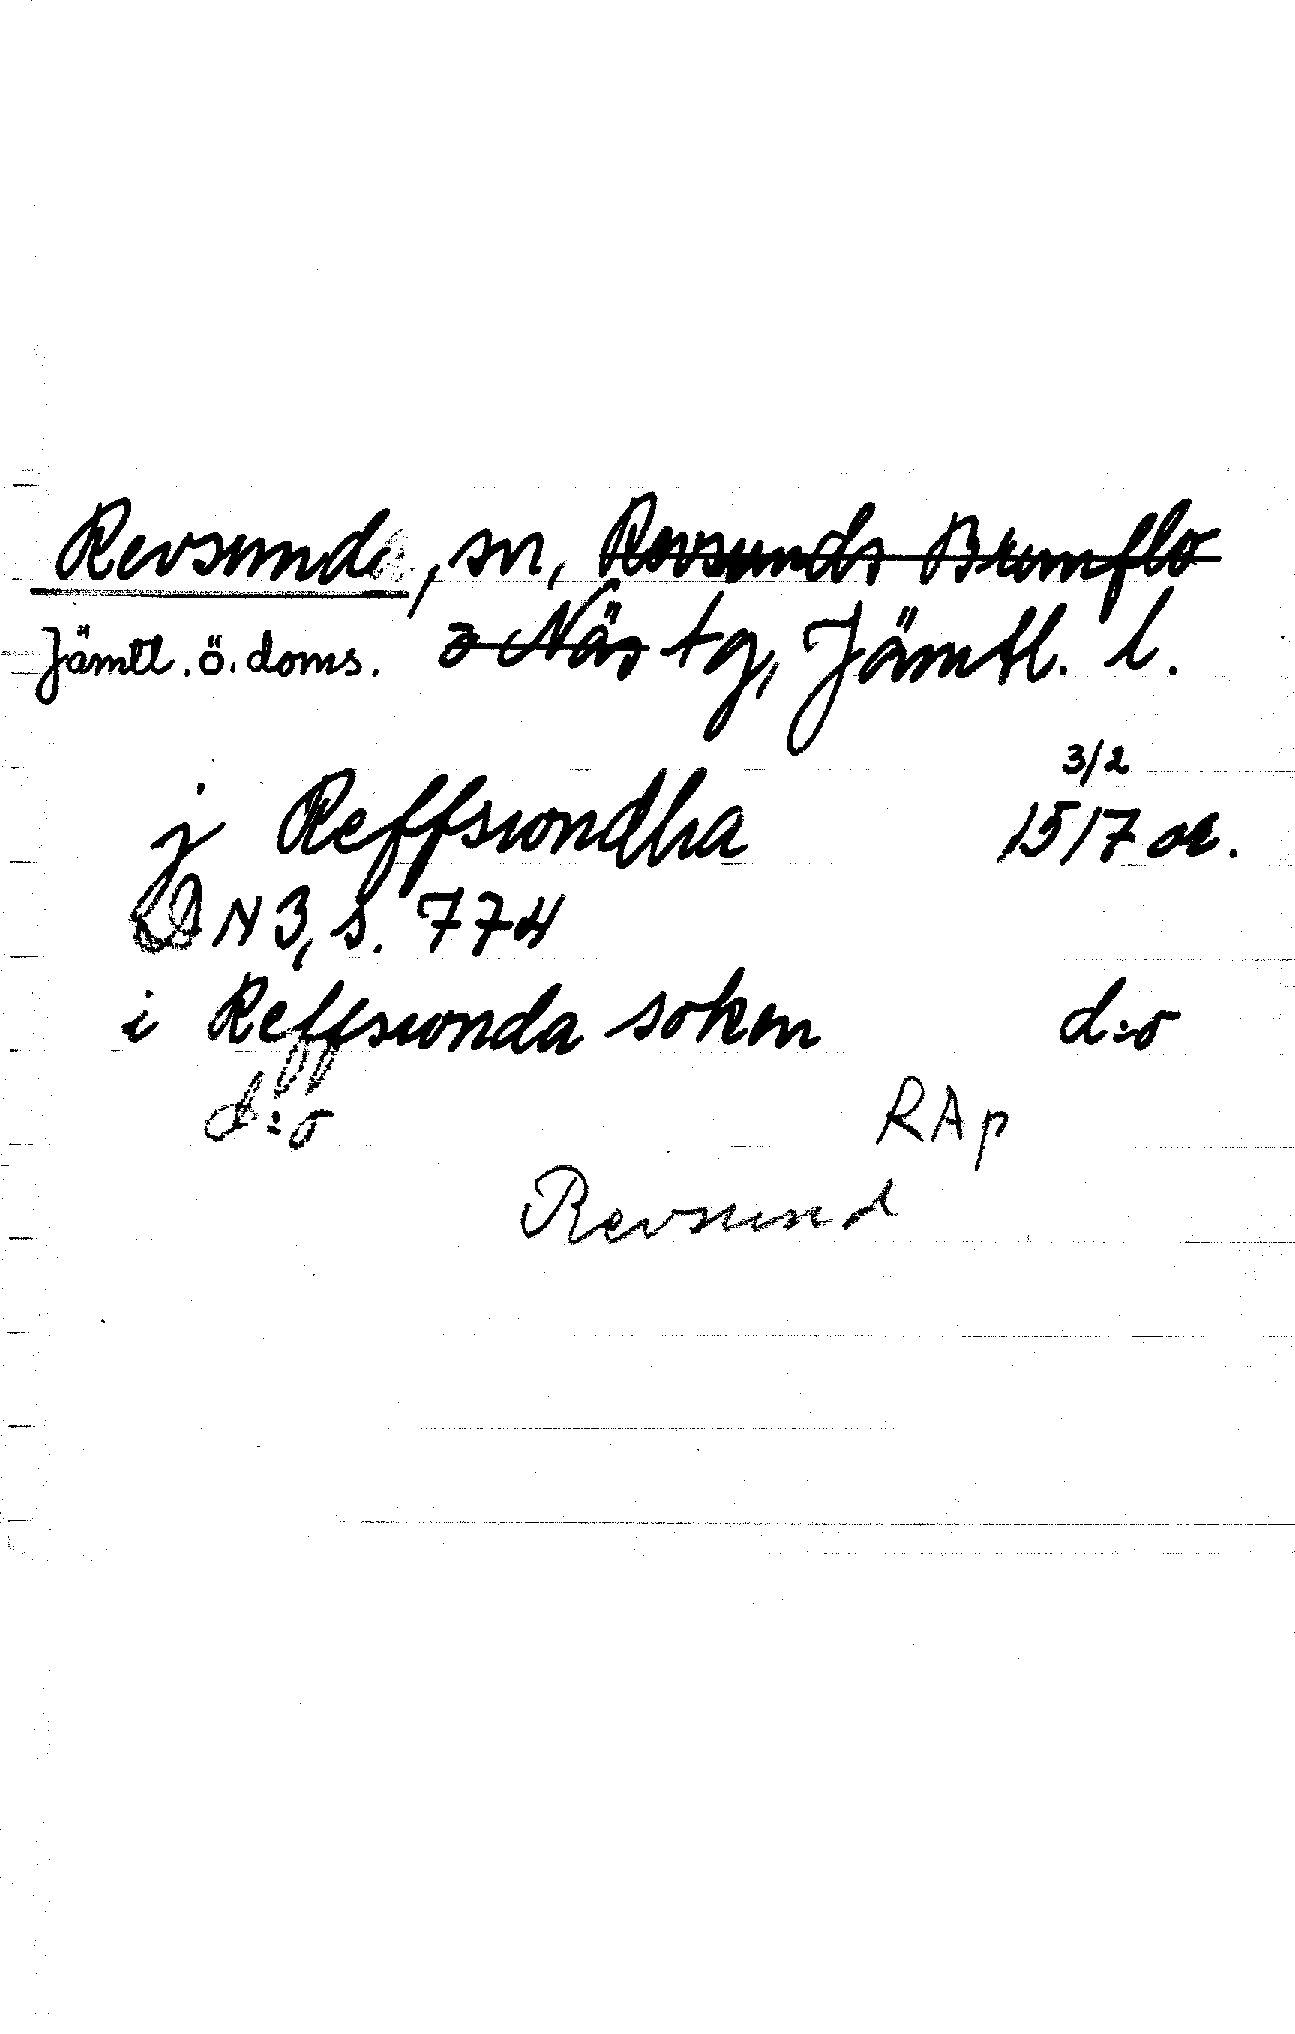 Revsunds, sn, Revsunds Brunflo
Jämtl. ö. doms. o Näs tg, Jämtl. l.
3/2
j Reffswndha 1517 or.
DN 3, s. 774
i Reffswnda soken d:o
d:o RAp
Revsund